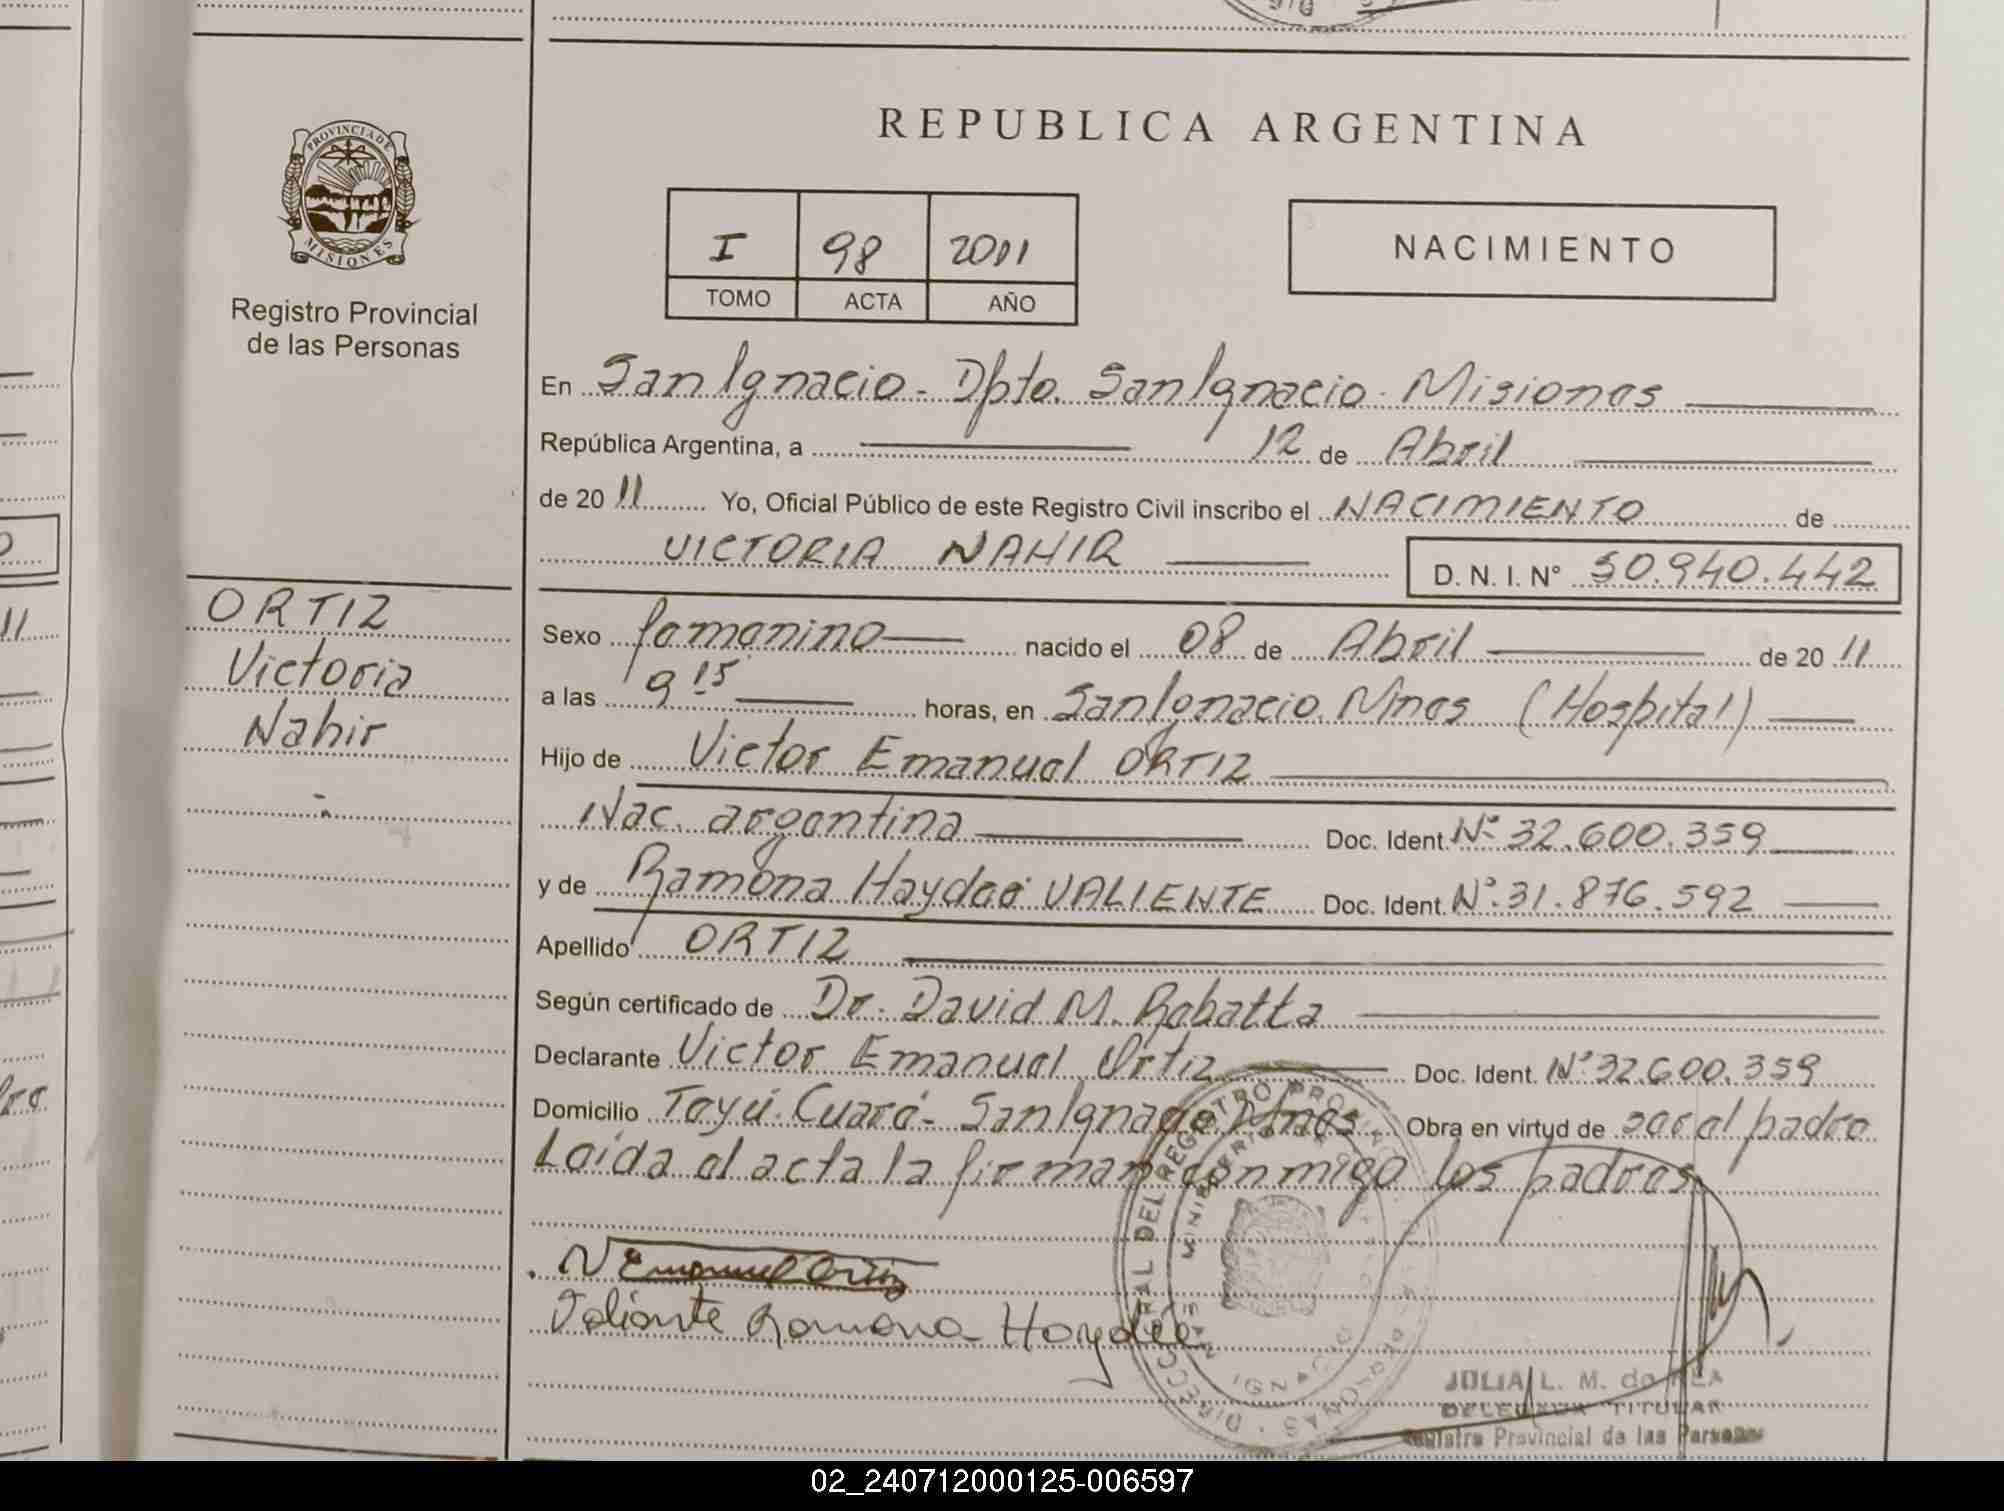 REPUBLICA ARGENTINA
PROVINCIA DE
MISIONES
Registro Provincial
de las Personas
I 98 2011
TOMO ACTA AÑO
NACIMIENTO
En San Ignacio - Dpto. San Ignacio - Misiones
República Argentina, a 12 de Abril
de 2011 Yo, Oficial Público de este Registro Civil inscribo el NACIMIENTO de
VICTORIA NAHIR
D. N. I. N° 50.940.442
ORTIZ
Victoria
Nahir
Sexo femenino nacido el 08 de Abril de 2011
a las 9 15 horas, en San Ignacio. Mnes (Hospital)
Hijo de Victor Emanuel ORTIZ
Nac. argentina Doc. Ident. N° 32.600.359
y de Ramona Haydeé VALIENTE Doc. Ident. N° 31.876.592
Apellido ORTIZ
Según certificado de Dr. David M. Robatta
Declarante Victor Emanuel Ortiz Doc. Ident. N° 32.600.359
Domicilio Teyú Cuaré - San Ignacio Mnes. Obra en virtud de ser el padre
Leída el acta la firman conmigo los padres
Emanuel Ortiz
Valiente Ramona Haydée
JULIA L. M. de REA
DELEGADA TITULAR
Registro Provincial de las Personas
02_240712000125-006597